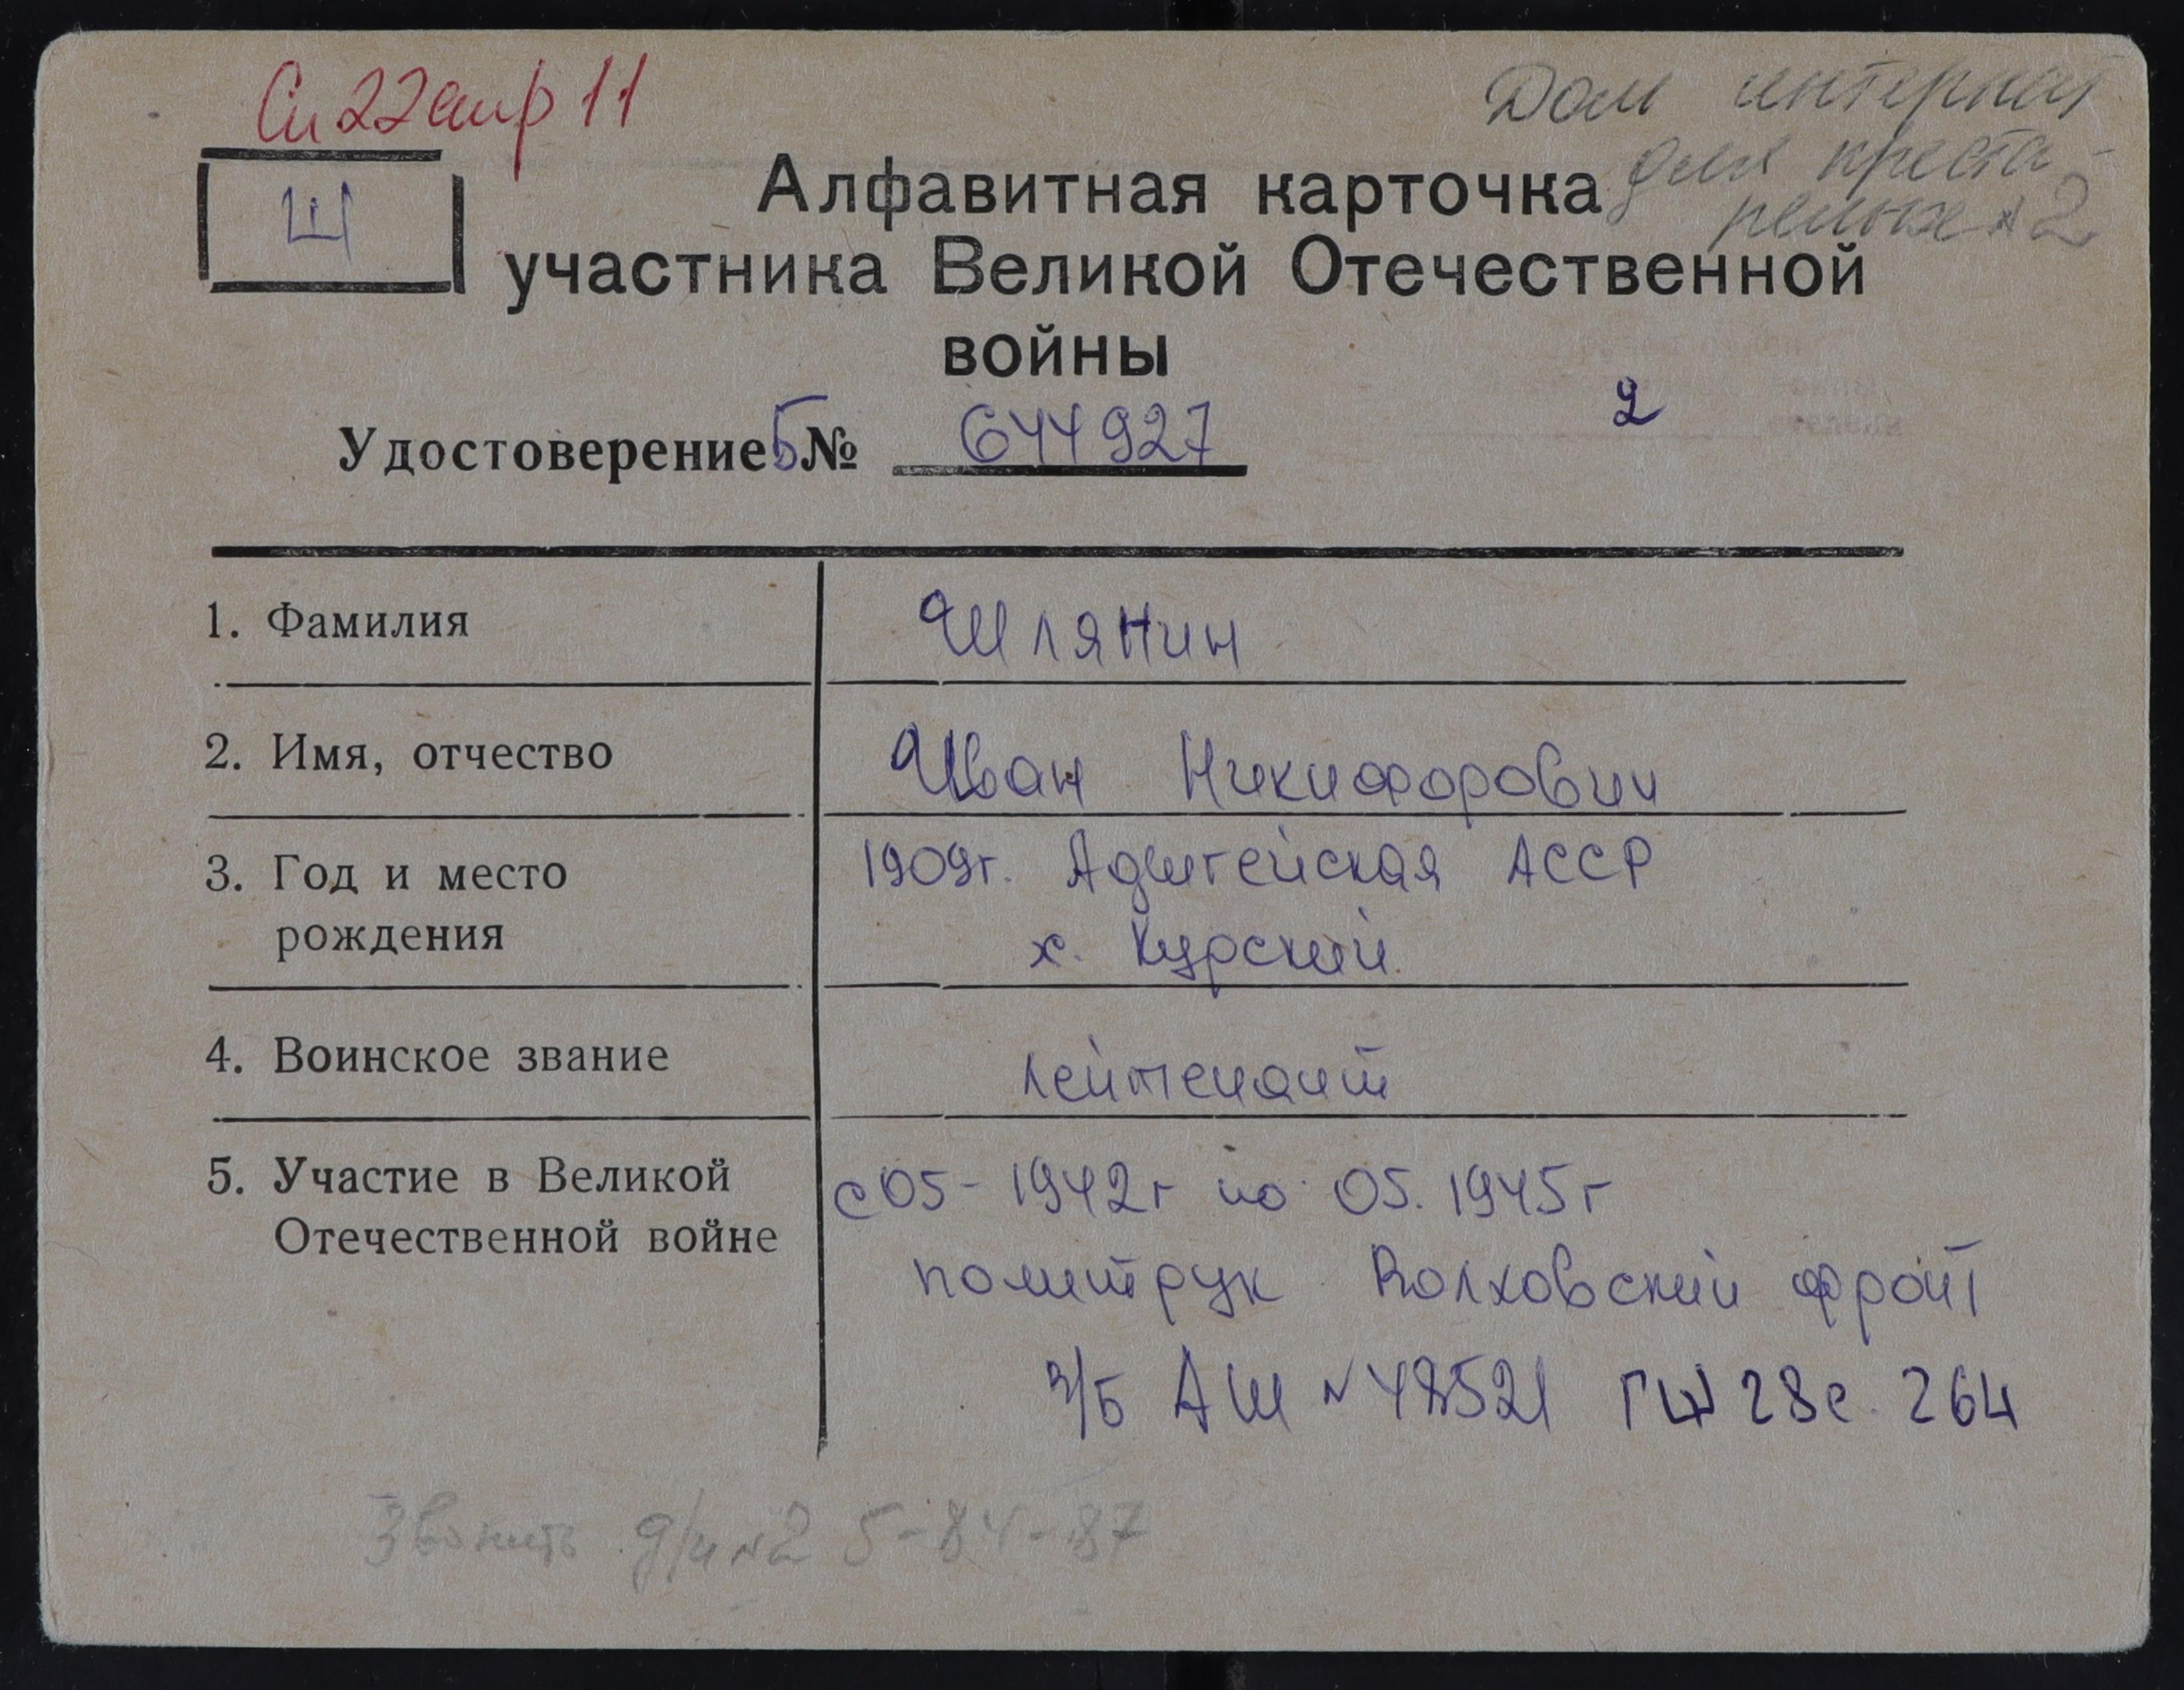 См 22 апр 11
Дом интернат
для преста-
релых № 2
Ш
Алфавитная карточка
участника Великой Отечественной
войны
2
Удостоверение Б № 644927
1. Фамилия
Шлянин
2. Имя, отчество
Иван Никифорович
3. Год и место
рождения
1909г. Адыгейская АССР
х. Курский
4. Воинское звание
лейтенант
5. Участие в Великой
Отечественной войне
с 05-1942г по 05.1945г
политрук Волховский фронт
в/б АШ № 48521 ГШ 28с. 264
Звонить д/и №2 5-84-87